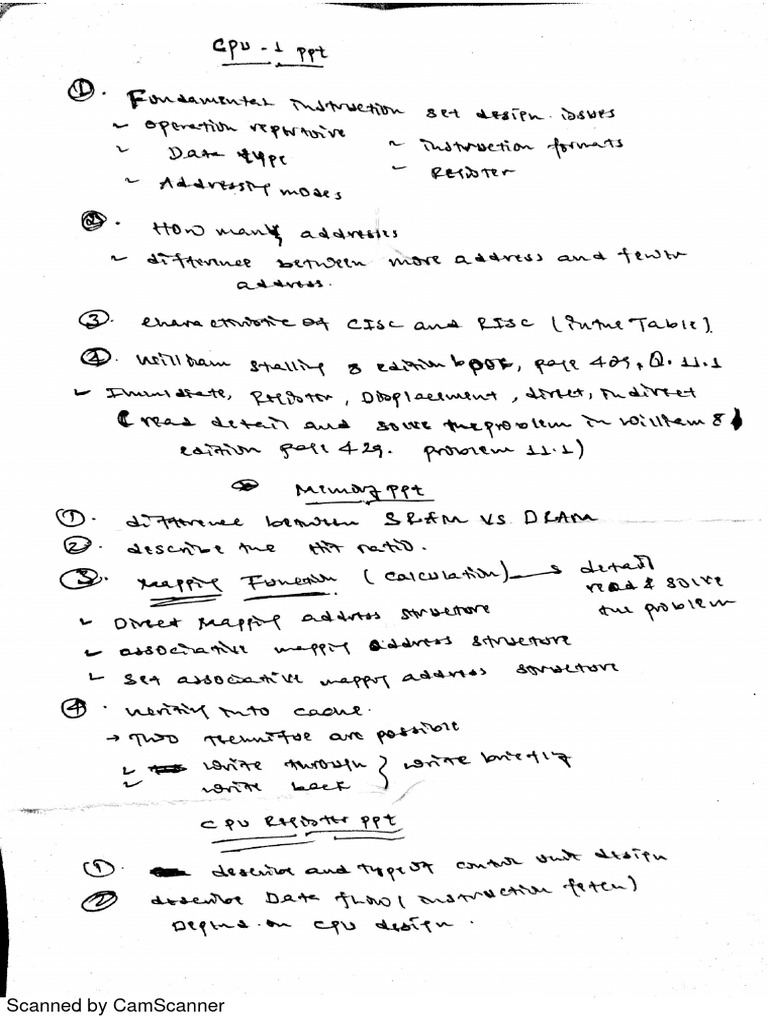 CPU - 1 ppt
①. Fundamental instruction set design issues
~ operation repertoire
~ instruction formats
~ Data type
~ Register
~ Addressing modes
②. How many addresses
~ difference between more address and fewer
address.
③. characteristic of CISC and RISC (in the Table).
④. William Stalling 8 edition book, page 429, Q. 11.1
~ Immidiate, Register, Displacement, direct, indirect
(read detail and solve the problem in William 8
edition page 429. problem 11.1)
Memory ppt
①. difference between SRAM VS DRAM
②. describe the Hit ratio.
③. Mapping Function (calculation) → detail
read & solve
the problem
~ Direct Mapping address structure
~ associative mapping address structure
~ set associative mapping address structure
④. writing into cache.
→ Two technique are possible
~ write through } write briefly
~ write back
CPU Register ppt
①. describe and type of control unit design
② describe Data flow (instruction fetch)
Depend on CPU design.
Scanned by CamScanner